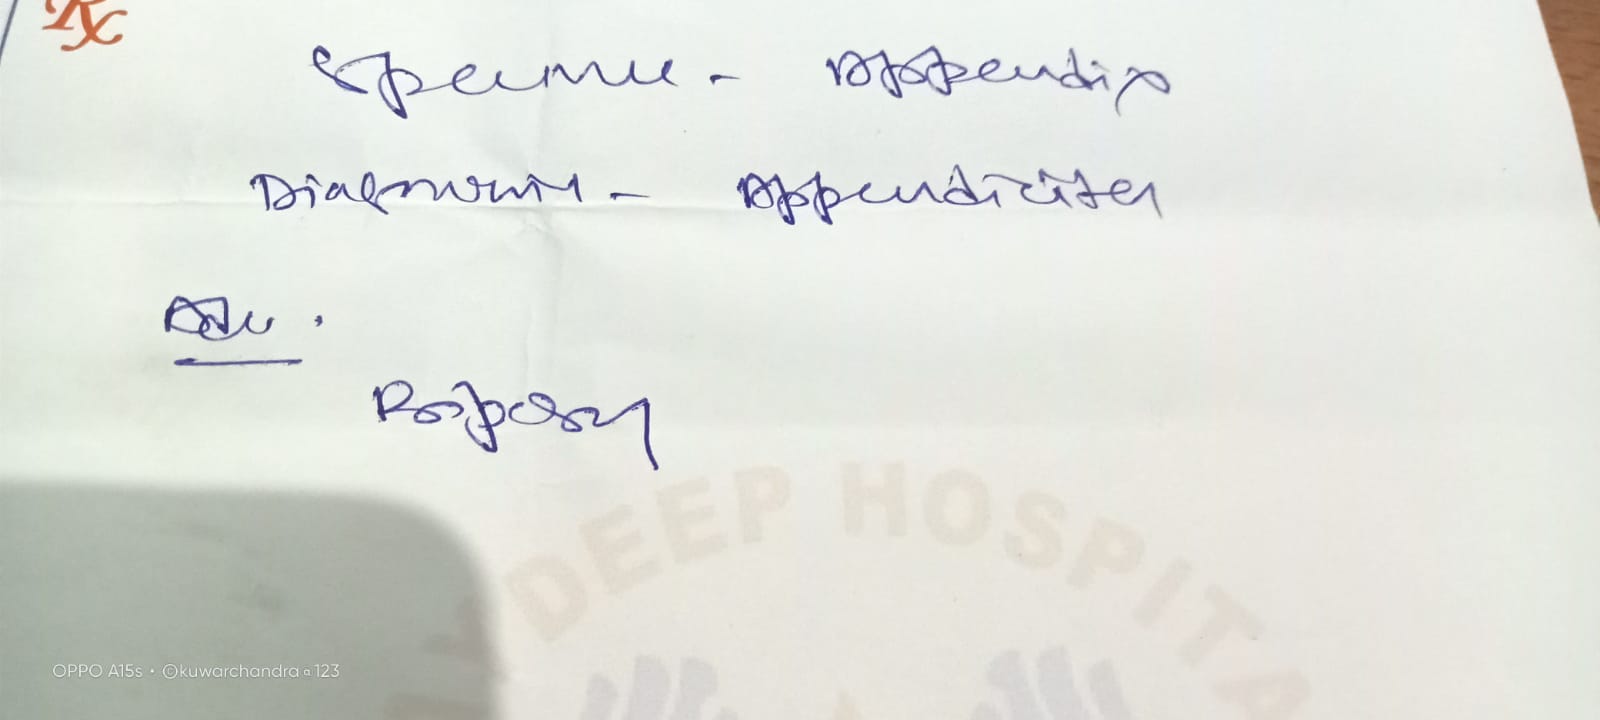 Rx
Specimen - Appendix
Diagnosis - Appendicitis
Adv.
Biopsy
DEEP HOSPITA
OPPO A15s • ©kuwarchandra 123